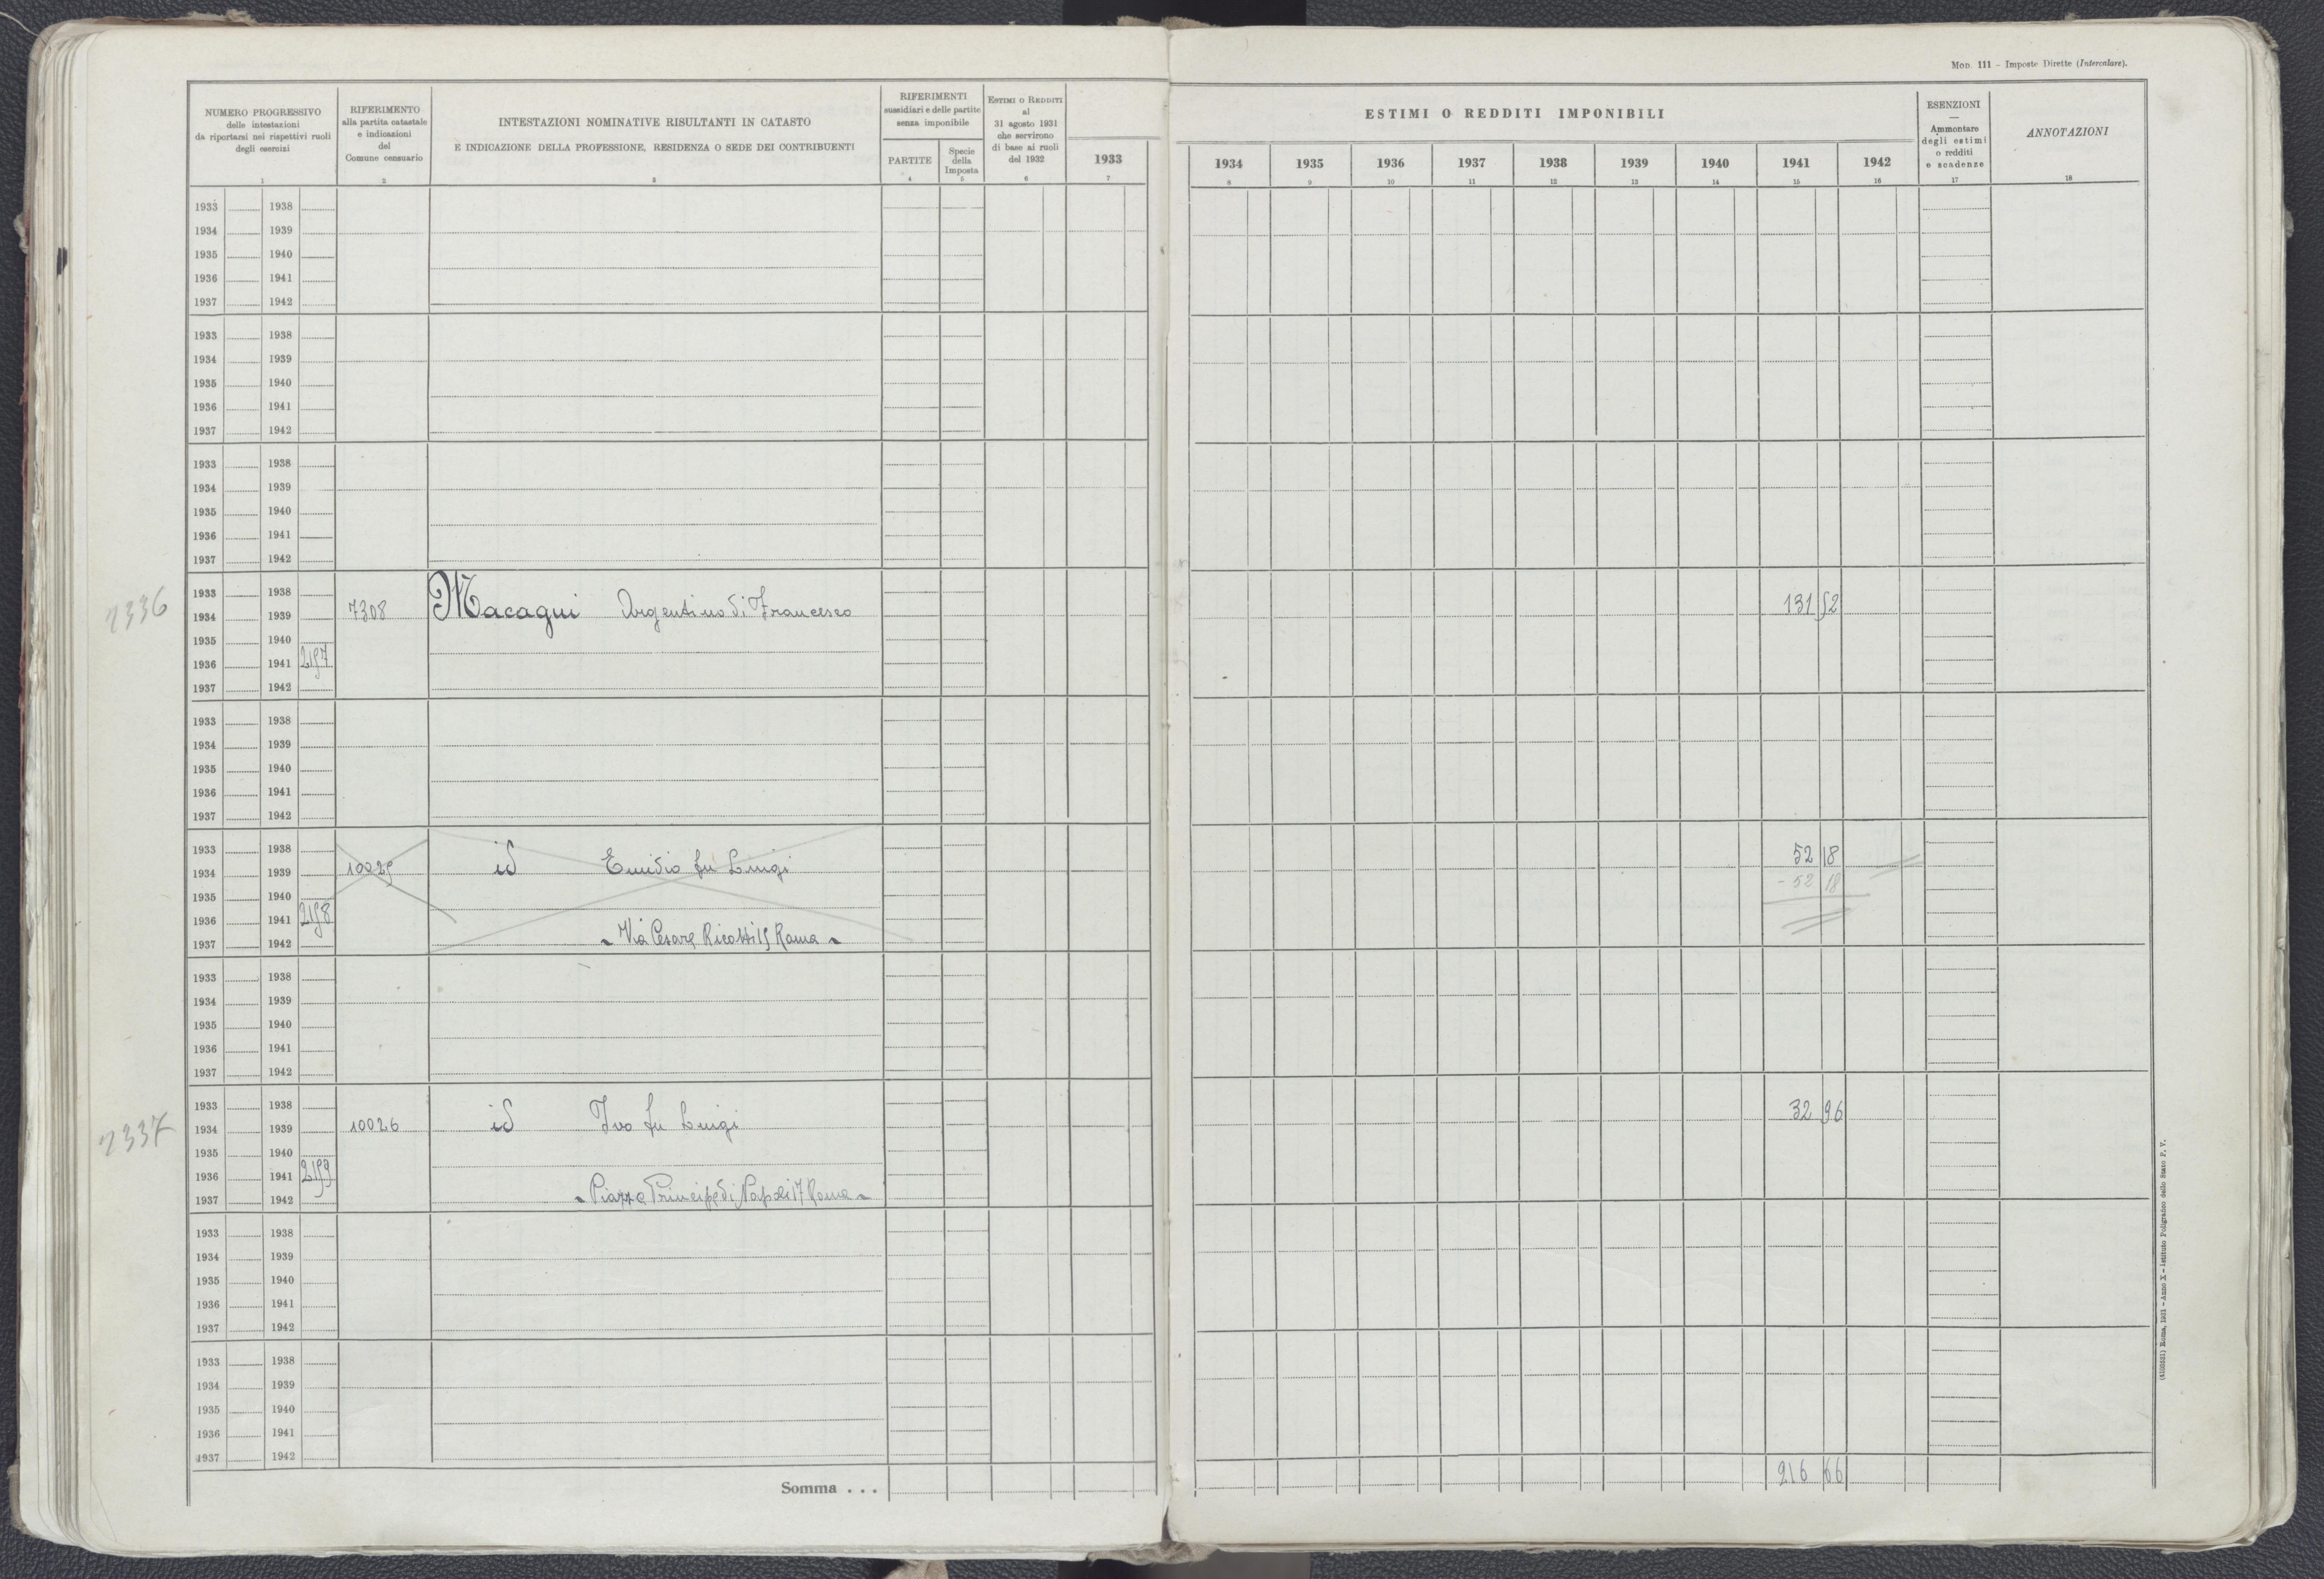 Mod. 111 - Imposte Dirette (Intercalare).
NUMERO PROGRESSIVO
delle intestazioni
da riportarsi nei rispettivi ruoli
degli esercizi
1
RIFERIMENTO
alla partita catastale
e indicazioni
del
Comune censuario
2
INTESTAZIONI NOMINATIVE RISULTANTI IN CATASTO
E INDICAZIONE DELLA PROFESSIONE, RESIDENZA O SEDE DEI CONTRIBUENTI
3
RIFERIMENTI
sussidiari e delle partite
senza imponibile
PARTITE
4
Specie
della
Imposta
5
ESTIMI O REDDITI
al
31 agosto 1931
che servirono
di base ai ruoli
del 1932
6
1933
7
ESTIMI O REDDITI IMPONIBILI
1934 1935 1936 1937 1938 1939 1940 1941 1942
8 9 10 11 12 13 14 15 16
ESENZIONI
Ammontare
degli estimi
o redditi
e scadenze
17
ANNOTAZIONI
18
1933 1938
1934 1939
1935 1940
1936 1941
1937 1942
1933 1938
1934 1939
1935 1940
1936 1941
1937 1942
1933 1938
1934 1939
1935 1940
1936 1941
1937 1942
2336
1933 1938
1934 1939 7308 Macagni Argentino di Francesco 131 52
1935 1940
1936 1941 2157
1937 1942
1933 1938
1934 1939
1935 1940
1936 1941
1937 1942
1933 1938 52 18
1934 1939 10025 id Emidio fu Luigi - 52 18
1935 1940
1936 1941 2158
1937 1942 - Via Cesare Ricotti 15 Roma -
1933 1938
1934 1939
1935 1940
1936 1941
1937 1942
2337
1933 1938 32 96
1934 1939 10026 id Ivo fu Luigi
1935 1940
1936 1941 2159
1937 1942 - Piazza Principe di Napoli 17 Roma -
1933 1938
1934 1939
1935 1940
1936 1941
1937 1942
1933 1938
1934 1939
1935 1940
1936 1941
1937 1942
Somma . . . 216 66
(4103531) Roma, 1931 - Anno X - Istituto Poligrafico dello Stato P. V.